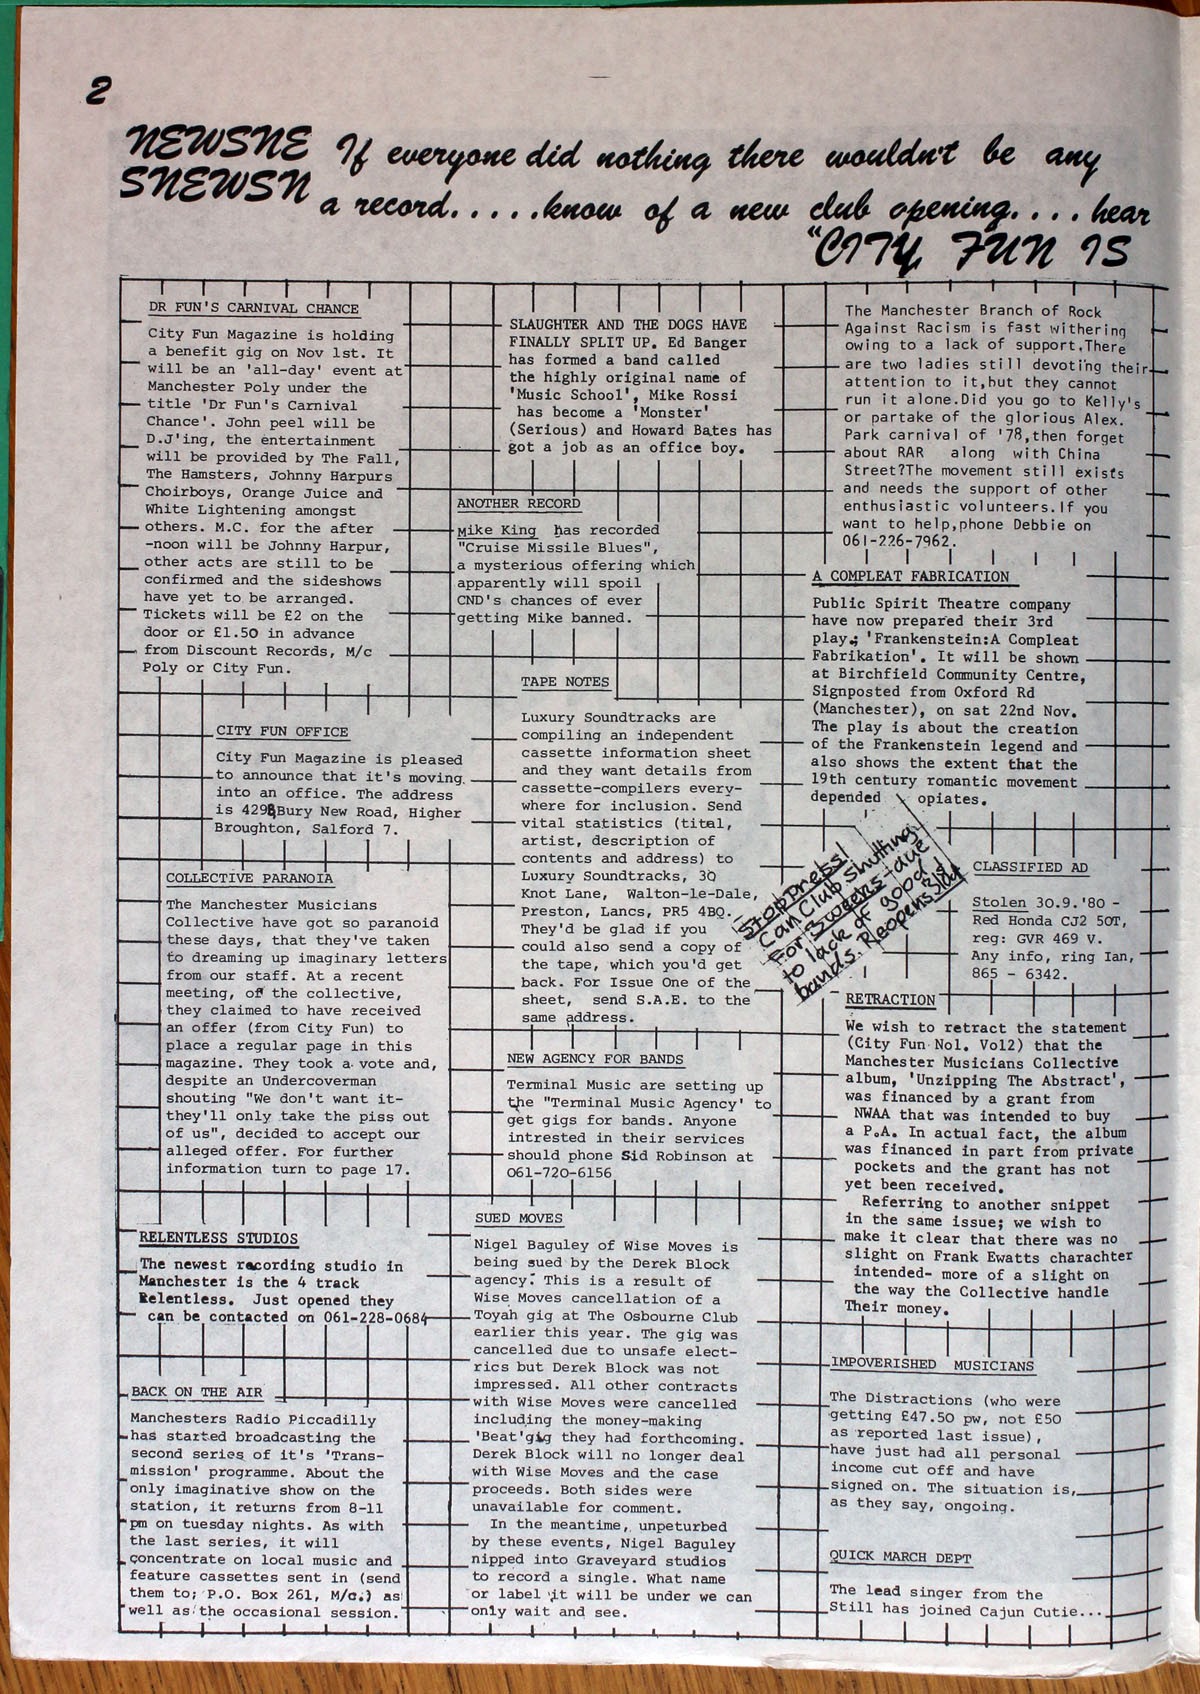 2
NEWSNE
SNEWSN
If everyone did nothing there wouldn't be any
a record.....know of a new club opening....hear
"CITY FUN IS
DR FUN'S CARNIVAL CHANCE
City Fun Magazine is holding
a benefit gig on Nov 1st. It
will be an 'all-day' event at
Manchester Poly under the
title 'Dr Fun's Carnival
Chance'. John peel will be
D.J'ing, the entertainment
will be provided by The Fall,
The Hamsters, Johnny Harpurs
Choirboys, Orange Juice and
White Lightening amongst
others. M.C. for the after
-noon will be Johnny Harpur,
other acts are still to be
confirmed and the sideshows
have yet to be arranged.
Tickets will be £2 on the
door or £1.50 in advance
from Discount Records, M/c
Poly or City Fun.
CITY FUN OFFICE
City Fun Magazine is pleased
to announce that it's moving
into an office. The address
is 429B Bury New Road, Higher
Broughton, Salford 7.
COLLECTIVE PARANOIA
The Manchester Musicians
Collective have got so paranoid
these days, that they've taken
to dreaming up imaginary letters
from our staff. At a recent
meeting, of the collective,
they claimed to have received
an offer (from City Fun) to
place a regular page in this
magazine. They took a vote and,
despite an Undercoverman
shouting "We don't want it-
they'll only take the piss out
of us", decided to accept our
alleged offer. For further
information turn to page 17.
RELENTLESS STUDIOS
The newest recording studio in
Manchester is the 4 track
Relentless. Just opened they
can be contacted on 061-228-0684
BACK ON THE AIR
Manchesters Radio Piccadilly
has started broadcasting the
second series of it's 'Trans-
mission' programme. About the
only imaginative show on the
station, it returns from 8-11
pm on tuesday nights. As with
the last series, it will
concentrate on local music and
feature cassettes sent in (send
them to; P.O. Box 261, M/c.) as
well as the occasional session.
SLAUGHTER AND THE DOGS HAVE
FINALLY SPLIT UP. Ed Banger
has formed a band called
the highly original name of
'Music School', Mike Rossi
has become a 'Monster'
(Serious) and Howard Bates has
got a job as an office boy.
ANOTHER RECORD
Mike King has recorded
"Cruise Missile Blues",
a mysterious offering which
apparently will spoil
CND's chances of ever
getting Mike banned.
TAPE NOTES
Luxury Soundtracks are
compiling an independent
cassette information sheet
and they want details from
cassette-compilers every-
where for inclusion. Send
vital statistics (titel,
artist, description of
contents and address) to
Luxury Soundtracks, 30
Knot Lane, Walton-le-Dale,
Preston, Lancs, PR5 4BQ.
They'd be glad if you
could also send a copy of
the tape, which you'd get
back. For Issue One of the
sheet, send S.A.E. to the
same address.
NEW AGENCY FOR BANDS
Terminal Music are setting up
the "Terminal Music Agency' to
get gigs for bands. Anyone
intrested in their services
should phone Sid Robinson at
061-720-6156
SUED MOVES
Nigel Baguley of Wise Moves is
being sued by the Derek Block
agency. This is a result of
Wise Moves cancellation of a
Toyah gig at The Osbourne Club
earlier this year. The gig was
cancelled due to unsafe elect-
rics but Derek Block was not
impressed. All other contracts
with Wise Moves were cancelled
including the money-making
'Beat'gig they had forthcoming.
Derek Block will no longer deal
with Wise Moves and the case
proceeds. Both sides were
unavailable for comment.
In the meantime, unpeturbed
by these events, Nigel Baguley
nipped into Graveyard studios
to record a single. What name
or label it will be under we can
only wait and see.
The Manchester Branch of Rock
Against Racism is fast withering
owing to a lack of support.There
are two ladies still devoting their
attention to it,but they cannot
run it alone.Did you go to Kelly's
or partake of the glorious Alex.
Park carnival of '78,then forget
about RAR along with China
Street?The movement still exists
and needs the support of other
enthusiastic volunteers.If you
want to help,phone Debbie on
061-226-7962.
A COMPLEAT FABRICATION
Public Spirit Theatre company
have now prepared their 3rd
play; 'Frankenstein:A Compleat
Fabrikation'. It will be shown
at Birchfield Community Centre,
Signposted from Oxford Rd
(Manchester), on sat 22nd Nov.
The play is about the creation
of the Frankenstein legend and
also shows the extent that the
19th century romantic movement
depended opiates.
Stop press!
Can Club shutting
for 3 weeks - due
to lack of good
bands. Reopens 31st
CLASSIFIED AD
Stolen 30.9.'80 -
Red Honda CJ2 50T,
reg: GVR 469 V.
Any info, ring Ian,
865 - 6342.
RETRACTION
We wish to retract the statement
(City Fun No1. Vol2) that the
Manchester Musicians Collective
album, 'Unzipping The Abstract',
was financed by a grant from
NWAA that was intended to buy
a P.A. In actual fact, the album
was financed in part from private
pockets and the grant has not
yet been received.
Referring to another snippet
in the same issue; we wish to
make it clear that there was no
slight on Frank Ewatts charachter
intended- more of a slight on
the way the Collective handle
Their money.
IMPOVERISHED MUSICIANS
The Distractions (who were
getting £47.50 pw, not £50
as reported last issue),
have just had all personal
income cut off and have
signed on. The situation is,
as they say, ongoing.
QUICK MARCH DEPT
The lead singer from the
Still has joined Cajun Cutie...